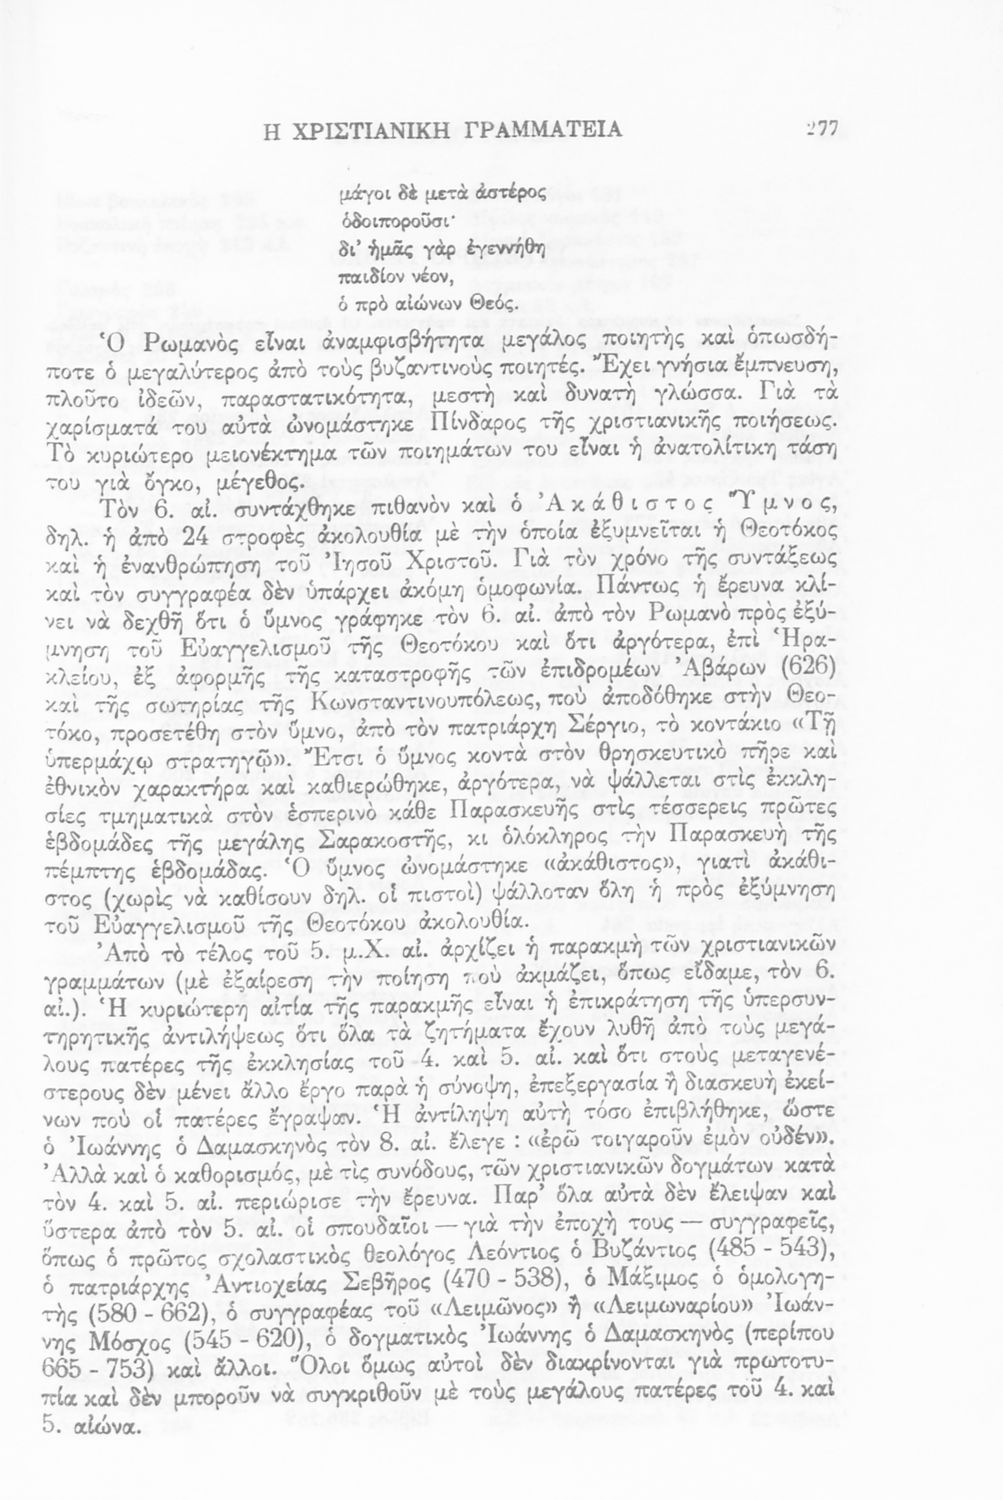 Η ΧΡΙΣΤΙΑΝΙΚΗ ΓΡΑΜΜΑΤΕΙΑ 277
μάγοι δὲ μετὰ ἀστέρος
ὁδοιποροῦσι·
δι' ἡμᾶς γὰρ ἐγεννήθη
παιδίον νέον,
ὁ πρὸ αἰώνων Θεός.
Ὁ Ρωμανὸς εἶναι ἀναμφισβήτητα μεγάλος ποιητὴς καὶ ὁπωσδή-
ποτε ὁ μεγαλύτερος ἀπὸ τοὺς βυζαντινοὺς ποιητές. Ἔχει γνήσια ἔμπνευση,
πλοῦτο ἰδεῶν, παραστατικότητα, μεστὴ καὶ δυνατὴ γλώσσα. Γιὰ τὰ
χαρίσματά του αὐτὰ ὠνομάστηκε Πίνδαρος τῆς χριστιανικῆς ποιήσεως.
Τὸ κυριώτερο μειονέκτημα τῶν ποιημάτων του εἶναι ἡ ἀνατολίτικη τάση
του γιὰ ὄγκο, μέγεθος.
Τὸν 6. αἰ. συντάχθηκε πιθανὸν καὶ ὁ Ἀκάθιστος Ὕμνος,
δηλ. ἡ ἀπὸ 24 στροφὲς ἀκολουθία μὲ τὴν ὁποία ἐξυμνεῖται ἡ Θεοτόκος
καὶ ἡ ἐνανθρώπηση τοῦ Ἰησοῦ Χριστοῦ. Γιὰ τὸν χρόνο τῆς συντάξεως
καὶ τὸν συγγραφέα δὲν ὑπάρχει ἀκόμη ὁμοφωνία. Πάντως ἡ ἔρευνα κλί-
νει νὰ δεχθῆ ὅτι ὁ ὕμνος γράφηκε τὸν 6. αἰ. ἀπὸ τὸν Ρωμανὸ πρὸς ἐξύ-
μνηση τοῦ Εὐαγγελισμοῦ τῆς Θεοτόκου καὶ ὅτι ἀργότερα, ἐπὶ Ἡρα-
κλείου, ἐξ ἀφορμῆς τῆς καταστροφῆς τῶν ἐπιδρομέων Ἀβάρων (626)
καὶ τῆς σωτηρίας τῆς Κωνσταντινουπόλεως, ποὺ ἀποδόθηκε στὴν Θεο-
τόκο, προσετέθη στὸν ὕμνο, ἀπὸ τὸν πατριάρχη Σέργιο, τὸ κοντάκιο «Τῇ
ὑπερμάχῳ στρατηγῷ». Ἔτσι ὁ ὕμνος κοντὰ στὸν θρησκευτικὸ πῆρε καὶ
ἐθνικὸν χαρακτήρα καὶ καθιερώθηκε, ἀργότερα, νὰ ψάλλεται στὶς ἐκκλη-
σίες τμηματικὰ στὸν ἑσπερινὸ κάθε Παρασκευῆς στὶς τέσσερεις πρῶτες
ἑβδομάδες τῆς μεγάλης Σαρακοστῆς, κι ὁλόκληρος τὴν Παρασκευὴ τῆς
πέμπτης ἑβδομάδας. Ὁ ὕμνος ὠνομάστηκε «ἀκάθιστος», γιατὶ ἀκάθι-
στος (χωρὶς νὰ καθίσουν δηλ. οἱ πιστοὶ) ψάλλοταν ὅλη ἡ πρὸς ἐξύμνηση
τοῦ Εὐαγγελισμοῦ τῆς Θεοτόκου ἀκολουθία.
Ἀπὸ τὸ τέλος τοῦ 5. μ.Χ. αἰ. ἀρχίζει ἡ παρακμὴ τῶν χριστιανικῶν
γραμμάτων (μὲ ἐξαίρεση τὴν ποίηση ποὺ ἀκμάζει, ὅπως εἴδαμε, τὸν 6.
αἰ.). Ἡ κυριώτερη αἰτία τῆς παρακμῆς εἶναι ἡ ἐπικράτηση τῆς ὑπερσυν-
τηρητικῆς ἀντιλήψεως ὅτι ὅλα τὰ ζητήματα ἔχουν λυθῆ ἀπὸ τοὺς μεγά-
λους πατέρες τῆς ἐκκλησίας τοῦ 4. καὶ 5. αἰ. καὶ ὅτι στοὺς μεταγενέ-
στερους δὲν μένει ἄλλο ἔργο παρὰ ἡ σύνοψη, ἐπεξεργασία ἢ διασκευὴ ἐκεί-
νων ποὺ οἱ πατέρες ἔγραψαν. Ἡ ἀντίληψη αὐτὴ τόσο ἐπιβλήθηκε, ὥστε
ὁ Ἰωάννης ὁ Δαμασκηνὸς τὸν 8. αἰ. ἔλεγε : «ἐρῶ τοιγαροῦν ἐμὸν οὐδέν».
Ἀλλὰ καὶ ὁ καθορισμός, μὲ τὶς συνόδους, τῶν χριστιανικῶν δογμάτων κατὰ
τὸν 4. καὶ 5. αἰ. περιώρισε τὴν ἔρευνα. Παρ' ὅλα αὐτὰ δὲν ἔλειψαν καὶ
ὕστερα ἀπὸ τὸν 5. αἰ. οἱ σπουδαῖοι — γιὰ τὴν ἐποχὴ τους — συγγραφεῖς,
ὅπως ὁ πρῶτος σχολαστικὸς θεολόγος Λεόντιος ὁ Βυζάντιος (485 - 543),
ὁ πατριάρχης Ἀντιοχείας Σεβῆρος (470 - 538), ὁ Μάξιμος ὁ ὁμολογη-
τὴς (580 - 662), ὁ συγγραφέας τοῦ «Λειμῶνος» ἢ «Λειμωναρίου» Ἰωάν-
νης Μόσχος (545 - 620), ὁ δογματικὸς Ἰωάννης ὁ Δαμασκηνὸς (περίπου
665 - 753) καὶ ἄλλοι. Ὅλοι ὅμως αὐτοὶ δὲν διακρίνονται γιὰ πρωτοτυ-
πία καὶ δὲν μποροῦν νὰ συγκριθοῦν μὲ τοὺς μεγάλους πατέρες τοῦ 4. καὶ
5. αἰώνα.